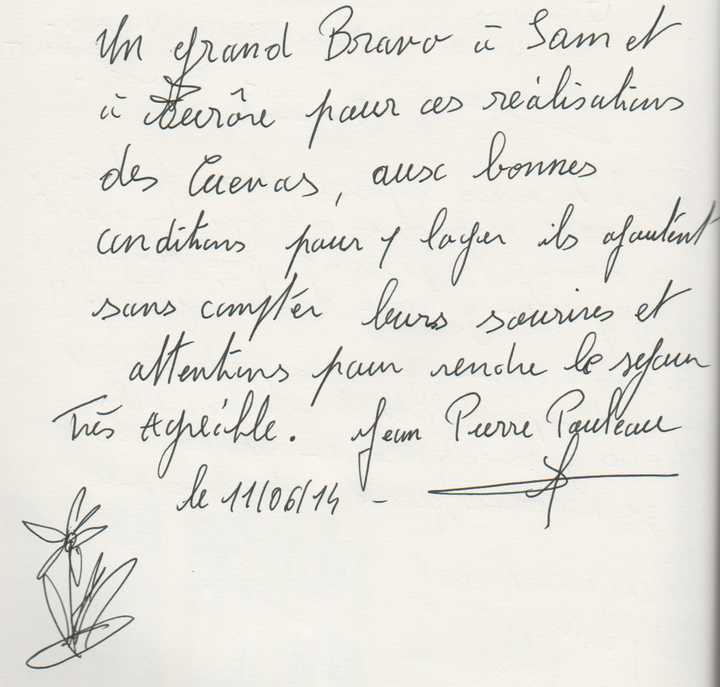 Un grand Bravo à Sam et
à Aurôre pour ces réalisations
des Cuevas, aux bonnes
conditions pour y loger ils ajoutent
sans compter leurs sourires et
attentions pour rendre le sejour
Très Agréable. Jean Pierre
le 11/06/14 -